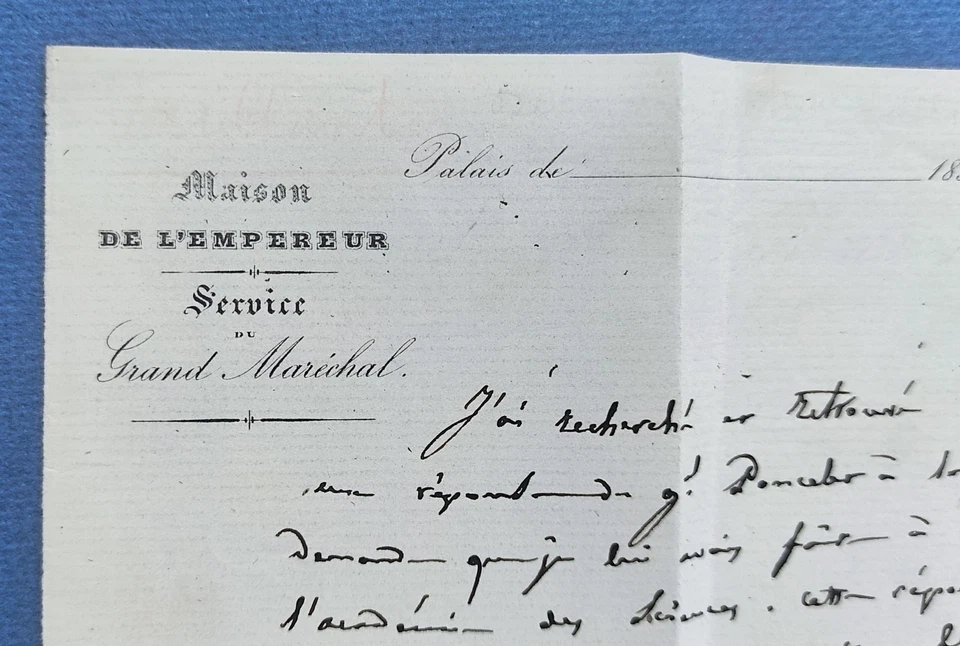 Palais de 185
Maison
DE L'EMPEREUR
Service
DU
Grand Maréchal.
J'ai recherché et retrouvé
une réponse du gl Poncelet à
demande que je lui avais faite à
l'académie des Sciences. cette